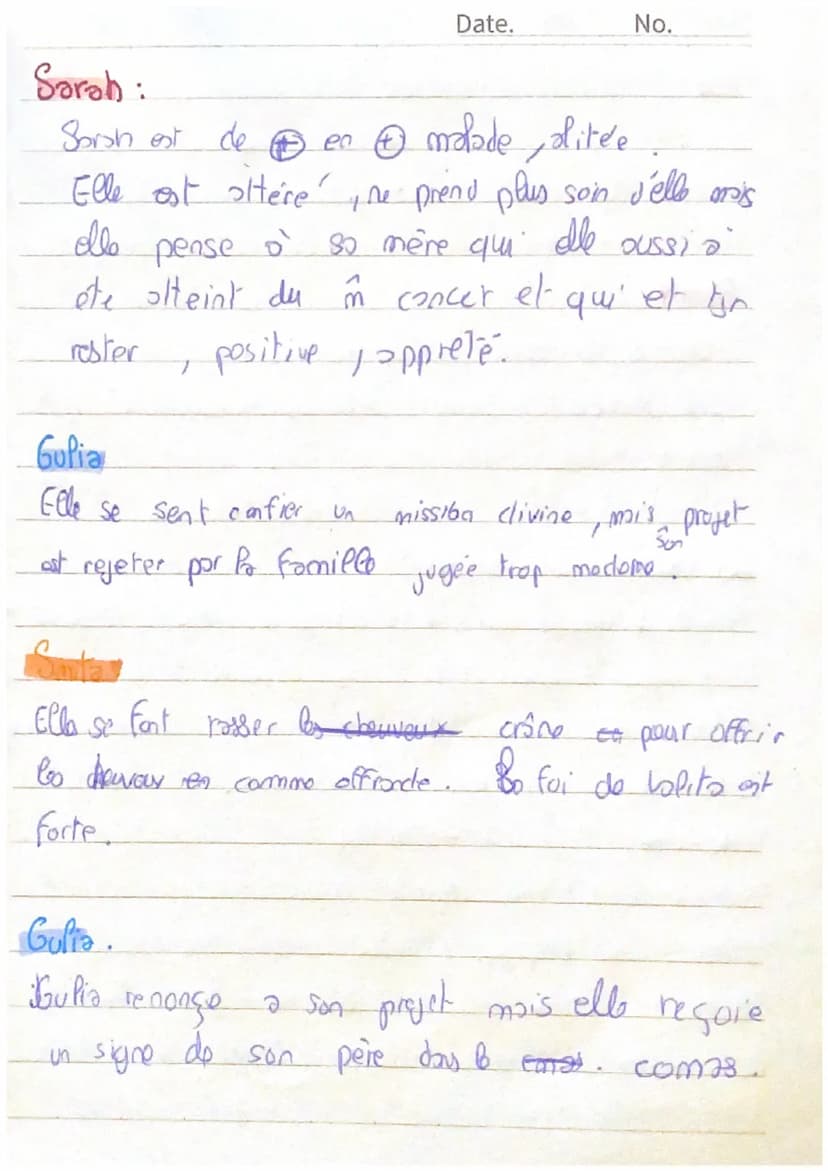 Date. No.
Sarah :
Sarah est de ⊕ en ⊕ malade, alitée.
Elle est altéré, ne prend plus soin d'elle mais
elle pense à sa mère qui elle aussi a
ete atteint du m̂ cancer et qui et
rester, positive, apprelé.
Gulia
Elle se sent confier un mission divine, mais son projet
est rejeter par la famille jugée trop moderne.
Smita
Elle se font rasser les cheuveux crâne et pour offrir
les cheveux en comme offrande. La foi de Lalita est
forte.
Gulia.
Gulia renonçe a son projet mais elle reçoie
un signe de son père dans le comas. comas.